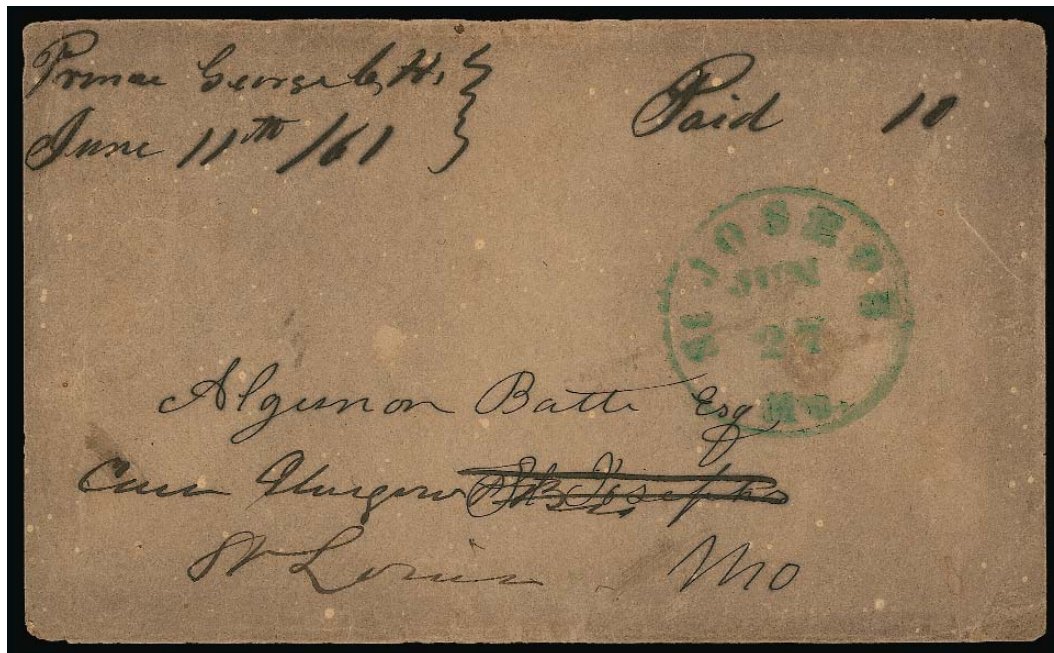 Prince George C. H.
June 11th /61
Paid 10
ST JOSEPH
JUN
27
MO.
Algernon Batte Esq
Care Glasgow & Bro St. Josephs
St Louis Mo